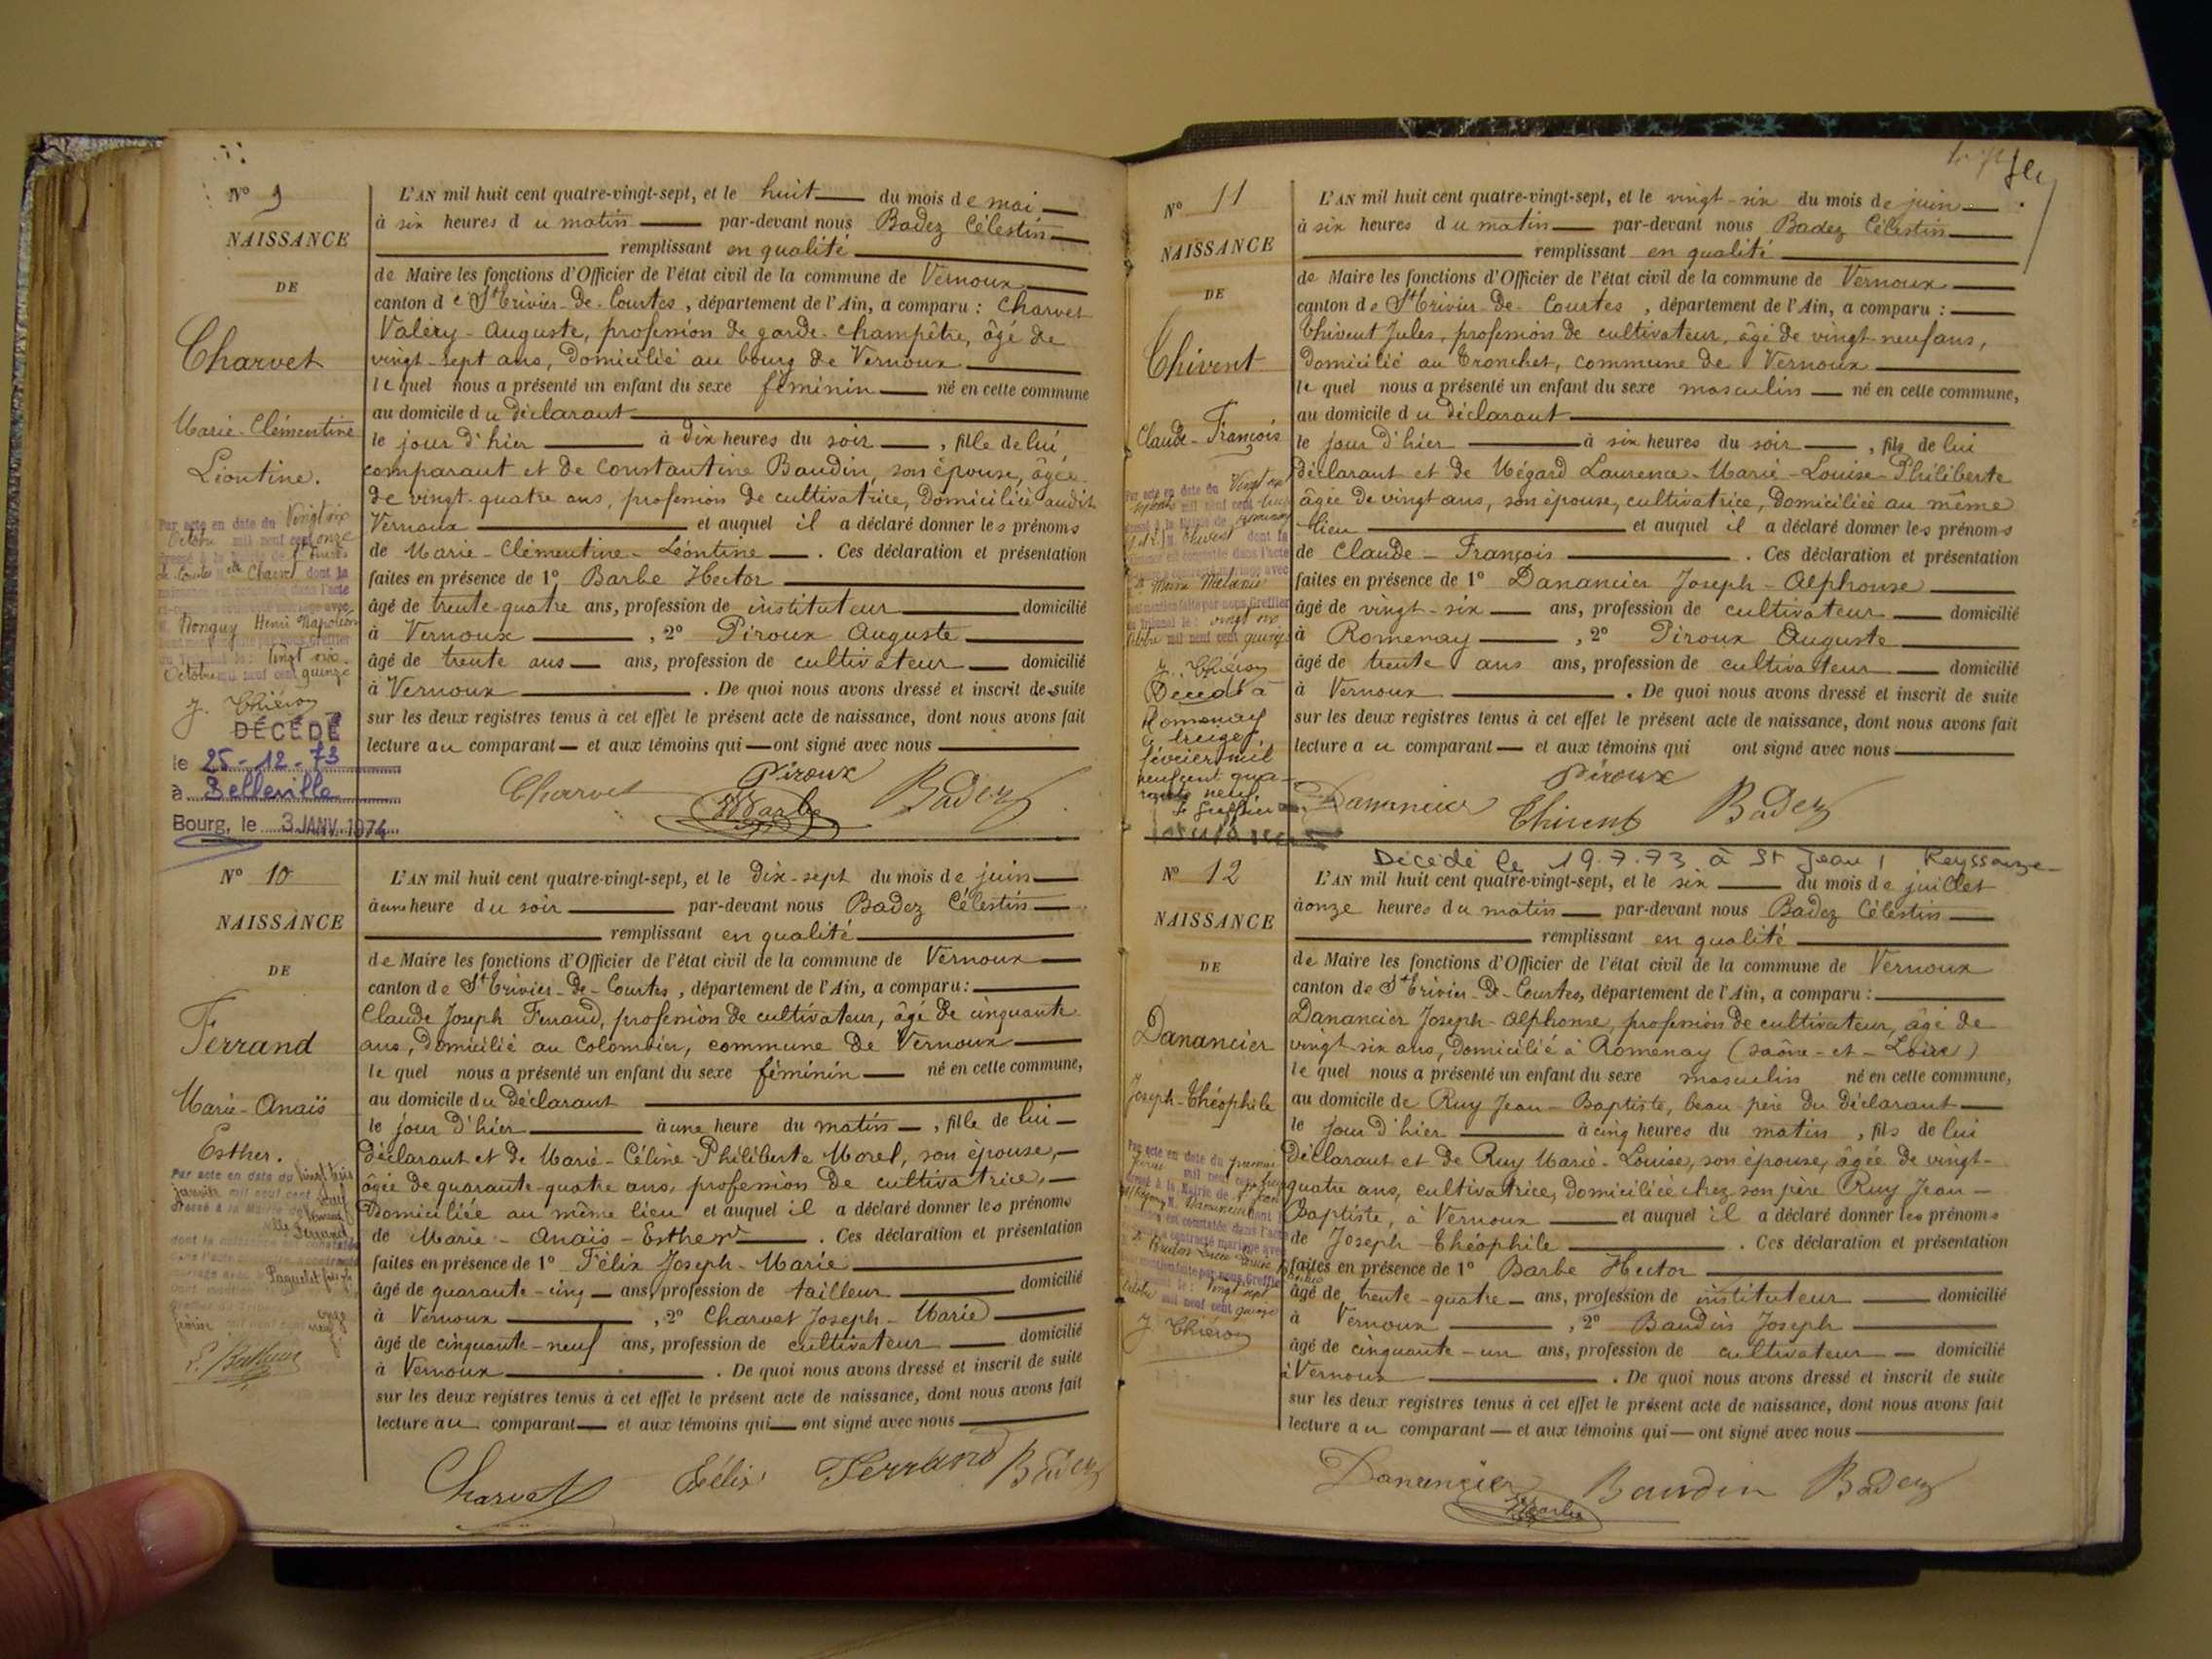 N° 9
NAISSANCE
DE
Charvet
Marie-Clémentine
Léontine.
Par acte en date du Vingt six
Octobre mil neuf cent onze
dressé à la Mairie de
de Courtes elle Charvet dont la
naissance est constatée dans l'acte
ci-contre a contracté mariage avec
M. Ronguy Henri Napoléon
Vingt six
Octobre mil neuf cent quinze
J. Thiéron
DÉCÉDÉ
le 25-12-73
à Belleville
Bourg, le 3 JANV. 1974
L'AN mil huit cent quatre-vingt-sept, et le huit du mois de mai
à six heures du matin par-devant nous Badez Célestin
remplissant en qualité
de Maire les fonctions d'Officier de l'état civil de la commune de Vernoux
canton de St Trivier-de-Courtes, département de l'Ain, a comparu : Charvet
Valéry-Auguste, profession de garde-champêtre, âgé de
vingt-sept ans, domicilié au bourg de Vernoux
lequel nous a présenté un enfant du sexe féminin né en cette commune
au domicile du déclarant
le jour d'hier à dix heures du soir, fille de lui
comparant et de Constantine Baudin, son épouse, âgée
de vingt-quatre ans, profession de cultivatrice, domiciliée audit
Vernoux et auquel il a déclaré donner les prénoms
de Marie-Clémentine-Léontine. Ces déclaration et présentation
faites en présence de 1° Barbe Hector
âgé de trente-quatre ans, profession de instituteur domicilié
à Vernoux, 2° Piroux Auguste
âgé de trente ans ans, profession de cultivateur domicilié
à Vernoux. De quoi nous avons dressé et inscrit de suite
sur les deux registres tenus à cet effet le présent acte de naissance, dont nous avons fait
lecture au comparant et aux témoins qui ont signé avec nous
Charvet Piroux HBarbe Badez
N° 10
NAISSANCE
DE
Ferrand
Marie-Anaïs
Esther.
Par acte en date du vingt trois
janvier mil neuf cent neuf
dressé à la Mairie de Vernoux
elle Ferrand
dont la naissance est constatée
Paquelet
onze
février mil neuf cent neuf
L'AN mil huit cent quatre-vingt-sept, et le dix-sept du mois de juin
à une heure du soir par-devant nous Badez Célestin
remplissant en qualité
de Maire les fonctions d'Officier de l'état civil de la commune de Vernoux
canton de St Trivier-de-Courtes, département de l'Ain, a comparu :
Claude Joseph Ferrand, profession de cultivateur, âgé de cinquante
ans, domicilié au Colombier, commune de Vernoux
lequel nous a présenté un enfant du sexe féminin né en cette commune,
au domicile du déclarant
le jour d'hier à une heure du matin, fille de lui
déclarant et de Marie-Céline-Philiberte Morel, son épouse,
âgée de quarante-quatre ans, profession de cultivatrice,
domiciliée au même lieu et auquel il a déclaré donner les prénoms
de Marie-Anaïs-Esther. Ces déclaration et présentation
faites en présence de 1° Félix Joseph-Marie
âgé de quarante-cinq ans, profession de tailleur domicilié
à Vernoux, 2° Charvet Joseph-Marie
âgé de cinquante-neuf ans, profession de cultivateur domicilié
à Vernoux. De quoi nous avons dressé et inscrit de suite
sur les deux registres tenus à cet effet le présent acte de naissance, dont nous avons fait
lecture au comparant et aux témoins qui ont signé avec nous
Charvet Félix Ferrand Badez
N° 11
NAISSANCE
DE
Thivent
Claude-François
Par acte en date du Vingt six
mil neuf cent
dressé à la Mairie de Romenay
M. Thivent dont la
naissance est constatée dans l'acte
mariage avec
Mélanie
vingt six
octobre mil neuf cent quinze
J. Thiéron
Décédé à
Romenay
le treize
février mil
neuf cent qua-
rante neuf.
Le Greffier
L'AN mil huit cent quatre-vingt-sept, et le vingt-six du mois de juin
à six heures du matin par-devant nous Badez Célestin
remplissant en qualité
de Maire les fonctions d'Officier de l'état civil de la commune de Vernoux
canton de St Trivier-de-Courtes, département de l'Ain, a comparu :
Thivent Jules, profession de cultivateur, âgé de vingt-neuf ans,
domicilié au Tronchet, commune de Vernoux
lequel nous a présenté un enfant du sexe masculin né en cette commune,
au domicile du déclarant
le jour d'hier à six heures du soir, fils de lui
déclarant et de Mégard Laurence-Marie-Louise-Philiberte
âgée de vingt ans, son épouse, cultivatrice, domiciliée au même
lieu et auquel il a déclaré donner les prénoms
de Claude-François. Ces déclaration et présentation
faites en présence de 1° Danancier Joseph-Alphonse
âgé de vingt-six ans, profession de cultivateur domicilié
à Romenay, 2° Piroux Auguste
âgé de trente ans ans, profession de cultivateur domicilié
à Vernoux. De quoi nous avons dressé et inscrit de suite
sur les deux registres tenus à cet effet le présent acte de naissance, dont nous avons fait
lecture au comparant et aux témoins qui ont signé avec nous
Danancier Piroux Thivent Badez
Décédé le 19.7.73 à St Jean / Reyssouze
N° 12
NAISSANCE
DE
Danancier
Joseph-Théophile
Par acte en date du premier
mil neuf cent
dressé à la Mairie de St Jean
s/ Reyssouze M. Danancier dont la
naissance est constatée dans l'acte
a contracté mariage avec
vingt sept
octobre mil neuf cent quinze
J. Thiéron
L'AN mil huit cent quatre-vingt-sept, et le six du mois de juillet
à onze heures du matin par-devant nous Badez Célestin
remplissant en qualité
de Maire les fonctions d'Officier de l'état civil de la commune de Vernoux
canton de St Trivier-de-Courtes, département de l'Ain, a comparu :
Danancier Joseph-Alphonse, profession de cultivateur, âgé de
vingt-six ans, domicilié à Romenay (Saône-et-Loire)
lequel nous a présenté un enfant du sexe masculin né en cette commune,
au domicile de Ruy Jean-Baptiste, beau-père du déclarant
le jour d'hier à cinq heures du matin, fils de lui
déclarant et de Ruy Marie-Louise, son épouse, âgée de vingt-
quatre ans, cultivatrice, domiciliée chez son père Ruy Jean-
Baptiste, à Vernoux et auquel il a déclaré donner les prénoms
de Joseph-Théophile. Ces déclaration et présentation
faites en présence de 1° Barbe Hector
âgé de trente-quatre ans, profession de instituteur domicilié
à Vernoux, 2° Baudin Joseph
âgé de cinquante-un ans, profession de cultivateur domicilié
à Vernoux. De quoi nous avons dressé et inscrit de suite
sur les deux registres tenus à cet effet le présent acte de naissance, dont nous avons fait
lecture au comparant et aux témoins qui ont signé avec nous
Danancier HBarbe Baudin Badez